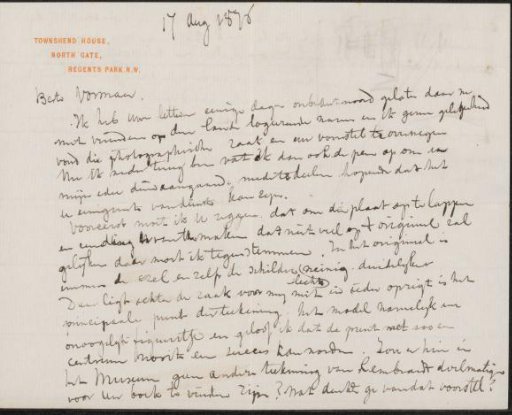 17 Aug 1878
TOWNSHEND HOUSE,
NORTH GATE,
REGENTS PARK N.W.
Beste Vosmaer.
Ik heb uw letteren eenige dagen onbeantwoord gelaten daar we
met vrienden op den land logeerende waren en ik geen gelegenheid
vond die photographische zaak en uw voorstel te overwegen
Nu ik rust terug ben vat ik dan ook de pen op om u
mijn idee dienaangaande mede te deelen hopende dat het
u eenigzints van dienst kan zijn.
Vooreerst moet ik u zeggen, dat om die plaat op te lappen
en eindelijk te maken dat niet veel op 't origineel zal
gelijken daar moet ik tegenstemmen. In het origineel is
immers de ezel en zelf de schilder weinig duidelijker
Daar ligt echter de zaak voor mij niet in ieder opzigt is het
principaal punt der teekening het model namelijk en
onoogelijk figuurtje en geloof ik dat de prent met zoo een
centrum nooit een succes kan worden. Zou er hier in
het Museum geen andere teekening van Rembrandt doelmatiger
voor uw boek te vinden zijn? Wat denkt ge van dat voorstel?